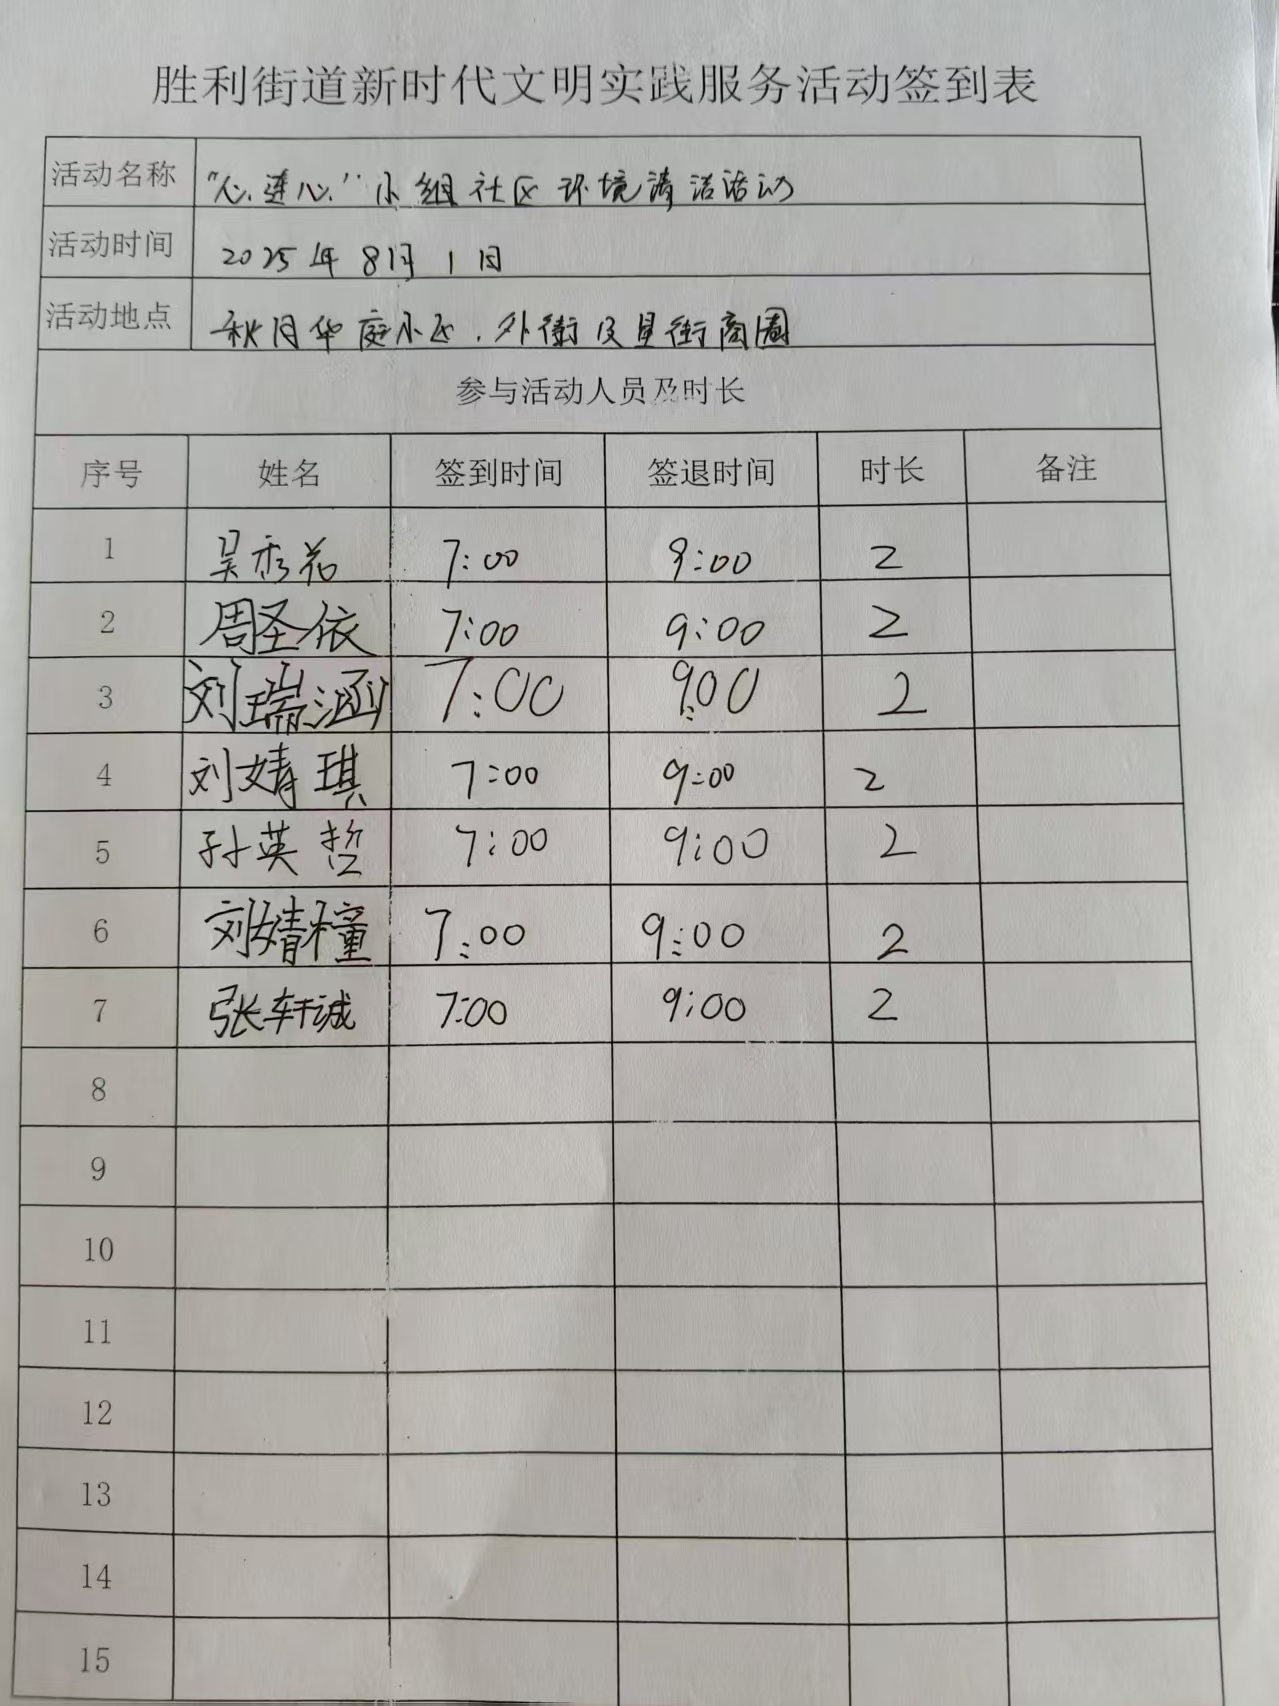 胜利街道新时代文明实践服务活动签到表
活动名称 "心连心"小组社区环境清洁活动
活动时间 2025年8月1日
活动地点 秋月华庭小区.外街及星街商圈
参与活动人员及时长
序号 姓名 签到时间 签退时间 时长 备注
1 吴秀花 7:00 9:00 2
2 周圣依 7:00 9:00 2
3 刘瑞涵 7:00 9:00 2
4 刘婧琪 7:00 9:00 2
5 孙英哲 7:00 9:00 2
6 刘婧橦 7:00 9:00 2
7 张轩诚 7:00 9:00 2
8
9
10
11
12
13
14
15